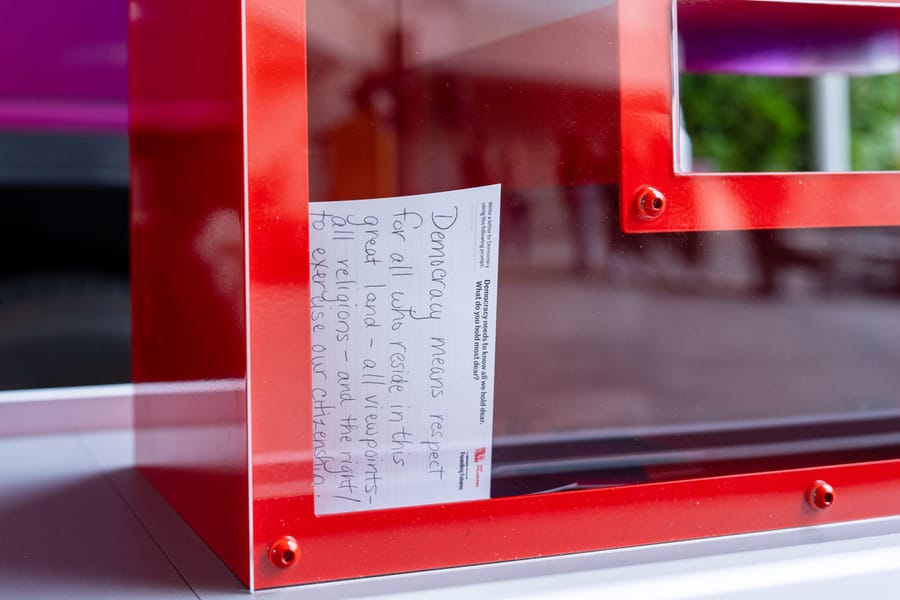 Write a letter to Democracy
using the following prompt:
Democracy needs to know all we hold dear.
What do you hold most dear?
Founding Futures
Democracy means respect
for all who reside in this
great land - all viewpoints -
all religions - and the right/
to exercise our citizenship.